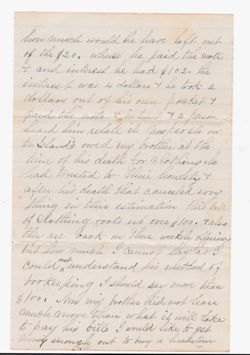 how much would he have left out
of the $20. when he paid the note
& and interest he had $102. the
interest was 4 dollars & he took 2
dollars out of his own pocket &
paid the note & a person
heard him relate it on
the owed my brother at the
time of his death for Clothing he
had trusted to their honesty &
after his death that cancelled every
thing in their estimation this bill
of Clothing foots up over $100. & also
they are back in their weekly
but how much I cannot say as I
could not understand his method of
bookeeping I should say more than
$100. Now my brother did not leave
much more than what it will take
to pay his bills I would like to get
money enough out to buy a headstone